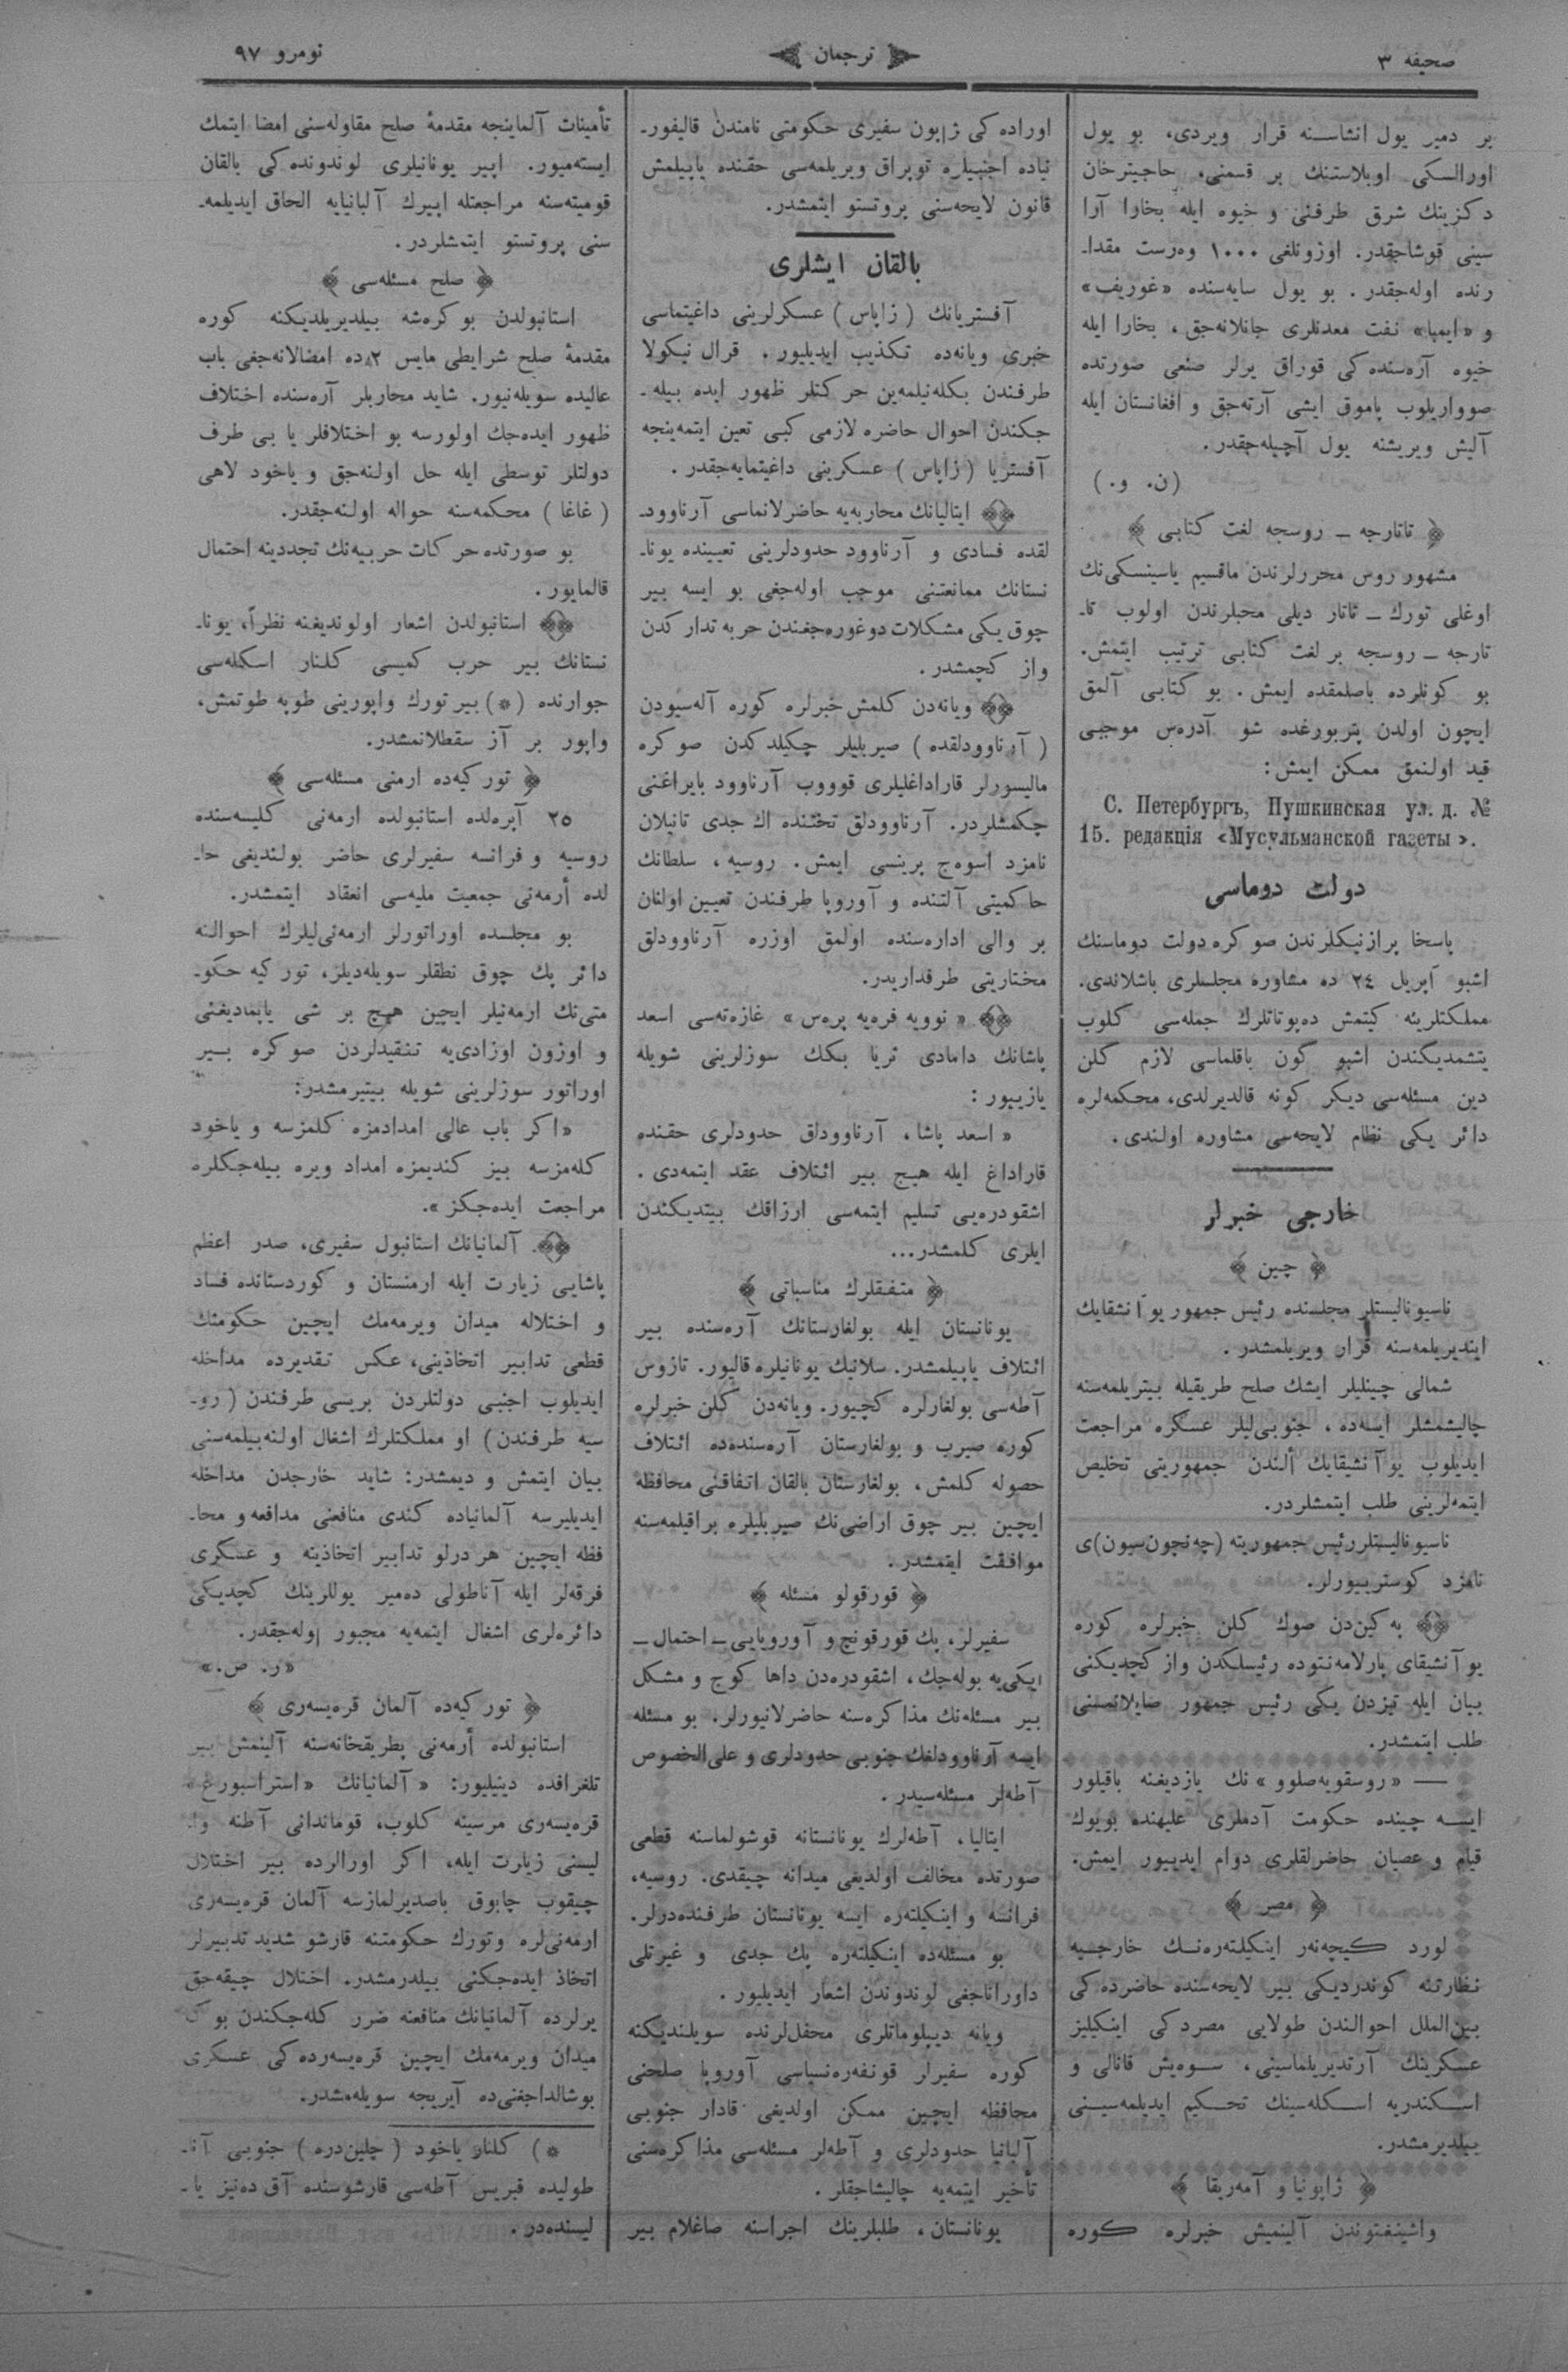 صحيفه ٣
ترجمان
نومرو ٩٧
بر دمير يول انشاسنه قرار ويردى، بو يول
اورالسكى اوبلاستنك بر قسمنى، حاجيترخان
دكزينك شرق طرفنى و خيوه ايله بخارا آرا
سينى قوشاجقدر. اوزونلغى ١٠٠٠ وه‌رست مقدا‍ـ
رنده اوله‌جقدر. بو يول سايه‌سنده «غوريف»
و «ايمبا» نفت معدنلرى جانلانه‌جق، بخارا ايله
خيوه آره‌سنده‌كى قوراق يرلر صنعى صورتده
صوواريلوب پاموق ايشى آرته‌جق و افغانستان ايله
آليش ويريشنه يول آچيله‌جقدر.
(ن. و.)
﴿ تاتارجه ـ روسجه لغت كتابى ﴾
مشهور روس محررلرندن ماقسيم ياسينسكى‌نك
اوغلى تورك ـ تاتار ديلى محبلرندن اولوب تا‍ـ
تارجه ـ روسجه بر لغت كتابى ترتيب ايتمش.
بو كونلرده باصلمقده ايمش. بو كتابى آلمق
ايچون اولدن پتربورغده شو آدره‌س موجبى
قيد اولنمق ممكن ايمش:
С. Петербургъ, Пушкинская ул. д. №
15. редакція «Мусульманской газеты».
دولت دوماسى
پاسخا پرازنيكلرندن صوكره دولت دوماسنك
اشبو آپريل ٢٤ ده مشاوره مجلسلرى باشلاندى.
مملكتلرينه كيتمش ده‌پوتاتلرك جمله‌سى كلوب
يتشمديكندن اشبو كون باقلماسى لازم كلن
دين مسئله‌سى ديكر كونه قالديرلدى، محكمه‌لره
دائر يكى نظام لايحه‌سى مشاوره اولندى.
خارجى خبرلر
﴿ چين ﴾
ناسيوناليستلر مجلسنده رئيس جمهور يوآنشقايك
اينديريلمه‌سنه قرار ويريلمشدر.
شمالى چينليلر ايشك صلح طريقيله بيتريلمه‌سنه
چاليشمشلر ايسه‌ده، جنوبى‌ليلر عسكره مراجعت
ايديلوب يوآنشيقايك ألندن جمهوريتى تخليص
ايتمه‌لرينى طلب ايتمشلردر.
ناسيوناليستلر رئيس جمهوريته (چه‌نچون‌سيون)ى
نامزد كوستريورلر.
به‌كين‌دن صوك كلن خبرلره كوره
يوآنشيقاى پارلامه‌نتوده رئيسلكدن وازكچديكنى
بيان ايله تيزدن يكى رئيس جمهور صايلانمسنى
طلب ايتمشدر.
— «روسقويه‌صلوو»نك يازديغنه باقيلور
ايسه چينده حكومت آدملرى عليهنده بويوك
قيام و عصيان حاضرلقلرى دوام ايدييور ايمش.
﴿ مصر ﴾
لورد كيچه‌نه‌ر اينكيلتره‌نك خارجيه
نظارتنه كوندرديكى بير لايحه‌سنده حاضرده‌كى
بين‌الملل احوالندن طولايى مصرده‌كى اينكيليز
عسكرينك آرتديريلماسينى، سوه‌يش قانالى و
اسكندريه اسكله‌سينك تحكيم ايديلمه‌سينى
بيلديرمشدر.
﴿ ژاپونيا و آمه‌ريقا ﴾
واشينغتوندن آلينميش خبرلره كوره
اوراده‌كى ژاپون سفيرى حكومتى نامندن قاليفور‍ـ
نياده اجنبيلره توپراق ويريلمه‌سى حقنده ياپيلمش
قانون لايحه‌سنى پروتستو ايتمشدر.
بالقان ايشلرى
آفستريانك (زاپاس) عسكرلرينى داغيتماسى
خبرى ويانه‌ده تكذيب ايديليور. قرال نيكولا
طرفندن بكله‌نيلمه‌ين حركتلر ظهور ايده بيله‍ـ
جكندن احوال حاضره لازمى كبى تعين ايتمه‌ينجه
آفستريا (زاپاس) عسكرينى داغيتمايه‌جقدر.
ايتاليانك محاربه‌يه حاضرلانماسى آرناوود‍ـ
لقده فسادى و آرناوود حدودلرينى تعيينده يونا‍ـ
نستانك ممانعتنى موجب اوله‌جغى بو ايسه بير
چوق يكى مشكلات دوغوره‌جغندن حربه تداركدن
واز كچمشدر.
ويانه‌دن كلمش خبرلره كوره آله‌سيودن
(آرناوودلقده) صيربليلر چكيلدكدن صوكره
ماليسورلر قاراداغليلرى قوووب آرناوود بايراغنى
چكمشلردر. آرناوودلق تختنده اك جدى تانيلان
نامزد اسوه‌ج پرينسى ايمش. روسيه، سلطانك
حاكميتى آلتنده و آوروپا طرفندن تعيين اولنان
بر والى اداره‌سنده اولمق اوزره آرناوودلق
مختاريتى طرفداريدر.
«نوويه فره‌يه پره‌س» غازه‌ته‌سى اسعد
پاشانك دامادى ثريا بكك سوزلرينى شويله
يازييور:
«اسعد پاشا، آرناوودلق حدودلرى حقنده
قاراداغ ايله هيج بير ائتلاف عقد ايتمه‌دى.
اشقودره‌يى تسليم ايتمه‌سى ارزاقك بيتديكندن
ايلرى كلمشدر...
﴿ متفقلرك مناسباتى ﴾
يونانستان ايله بولغارستانك آره‌سنده بير
ائتلاف ياپيلمشدر. سلانيك يونانيلره قاليور. تازوس
آطه‌سى بولغارلره كچيور. ويانه‌دن كلن خبرلره
كوره صيرب و بولغارستان آره‌سنده‌ده ائتلاف
حصوله كلمش، بولغارستان بالقان اتفاقنى محافظه
ايچين بير چوق اراضى‌نك صيربليلره براقيلمه‌سنه
موافقت ايتمشدر.
﴿ قورقولو مسئله ﴾
سفيرلر، پك قورقونچ و آوروپايى ـ احتمال ـ
ايكى‌يه بوله‌جك، اشقودره‌دن داها كوج و مشكل
بير مسئله‌نك مذاكره‌سنه حاضرلانيورلر. بو مسئله
ايسه آرناوودلغك جنوبى حدودلرى و على‌الخصوص
آطه‌لر مسئله‌سيدر.
ايتاليا، آطه‌لرك يونانستانه قوشولماسنه قطعى
صورتده مخالف اولديغى ميدانه چيقدى. روسيه،
فرانسه و اينكيلتره ايسه يونانستان طرفنده‌درلر.
بو مسئله‌ده اينكيلته‌ره پك جدى و غيرتلى
داوراناجغى لوندوندن اشعار ايديليور.
ويانه ديپلوماتلرى محفل‌لرنده سويلنديكنه
كوره سفيرلر قونفه‌ره‌نسياسى آوروپا صلحنى
محافظه ايچين ممكن اولديغى قادار جنوبى
آلبانيا حدودلرى و آطه‌لر مسئله‌سى مذاكره‌سنى
تأخير ايتمه‌يه چاليشاجقلر.
يونانستان، طلبلرينك اجراسنه صاغلام بير
تأمينات آلماينجه مقدمهٔ صلح مقاوله‌سنى امضا ايتمك
ايسته‌ميور. اپير يونانيلرى لوندونده‌كى بالقان
قوميته‌سنه مراجعتله اپيرك آلبانيايه الحاق ايديلمه‍ـ
سنى پروتستو ايتمشلردر.
﴿ صلح مسئله‌سى ﴾
استانبولدن بوكره‌شه بيلديريلديكنه كوره
مقدمهٔ صلح شرايطى مايس ٨٢ده امضالانه‌جغى باب
عاليده سويله‌نيور. شايد محاربلر آره‌سنده اختلاف
ظهور ايده‌جك اولورسه بو اختلافلر يا بى طرف
دولتلر توسطى ايله حل اولنه‌جق و ياخود لاهى
(غاغا) محكمه‌سنه حواله اولنه‌جقدر.
بو صورتده حركات حربيه‌نك تجددينه احتمال
قالمايور.
استانبولدن اشعار اولونديغنه نظراً، يونا‍ـ
نستانك بير حرب كميسى كلنار اسكله‌سى
جوارنده (*) بير تورك واپورينى طوپه طوتمش،
واپور بر آز سقطلانمشدر.
﴿ توركيه‌ده ارمنى مسئله‌سى ﴾
٢٥ آپره‌لده استانبولده ارمه‌نى كليسه‌سنده
روسيه و فرانسه سفيرلرى حاضر بولنديغى حا‍ـ
لده أرمه‌نى جمعيت مليه‌سى انعقاد ايتمشدر.
بو مجلسده اوراتورلر ارمه‌نى‌ليلرك احوالنه
دائر پك چوق نطقلر سويله‌ديلر، توركيه حكو‍ـ
متى‌نك ارمه‌نيلر ايچين هيچ بر شى ياپماديغنى
و اوزون اوزادى‌يه تنقيدلردن صوكره بير
اوراتور سوزلرينى شويله بيتيرمشدر:
«اكر باب عالى امدادمزه كلمزسه و ياخود
كله‌مزسه بيز كنديمزه امداد ويره بيله‌جكلره
مراجعت ايده‌جكز».
آلمانيانك استانبول سفيرى، صدر اعظم
پاشايى زيارت ايله ارمنستان و كوردستانده فساد
و اختلاله ميدان ويرمه‌مك ايچين حكومتك
قطعى تدابير اتخاذينى، عكس تقديرده مداخله
ايديلوب اجنبى دولتلردن بريسى طرفندن (رو‍ـ
سيه طرفندن) او مملكتلرك اشغال اولنه‌بيلمه‌سنى
بيان ايتمش و ديمشدر: شايد خارجدن مداخله
ايديليرسه آلمانياده كندى منافعنى مدافعه و محا‍ـ
فظه ايچين هر درلو تدابير اتخاذينه و عسكرى
فرقه‌لر ايله آناطولى ده‌مير يوللرينك كچديكى
دائره‌لرى اشغال ايتمه‌يه مجبور اوله‌جقدر.
«ر. ص.»
﴿ توركيه‌ده آلمان قره‌يسه‌رى ﴾
استانبولده أرمه‌نى بطريقخانه‌سنه آلينمش بير
تلغرافده دينيليور: «آلمانيانك «استراسبورغ»
قره‌يسه‌رى مرسينه كلوب، قوماندانى آطنه وا
ليسنى زيارت ايله، اكر اورالرده بير اختلال
چيقوب چابوق باصديرلمازسه آلمان قره‌يسه‌رى
ارمه‌نى‌لره و تورك حكومتنه قارشو شديد تدبيرلر
اتخاذ ايده‌جكنى بيلدرمشدر. اختلال چيقه‌جق
يرلرده آلمانيانك منافعنه ضرر كله‌جكندن بوكا
ميدان ويرمه‌مك ايچين قره‌يسه‌رده‌كى عسكرى
بوشالداجغنى‌ده آيريجه سويله‌مشدر.
*) كلنار ياخود (چلين‌دره) جنوبى آنا‍ـ
طوليده قبريس آطه‌سى قارشوسنده آق ده‌نيز يا‍ـ
ليسنده‌در.